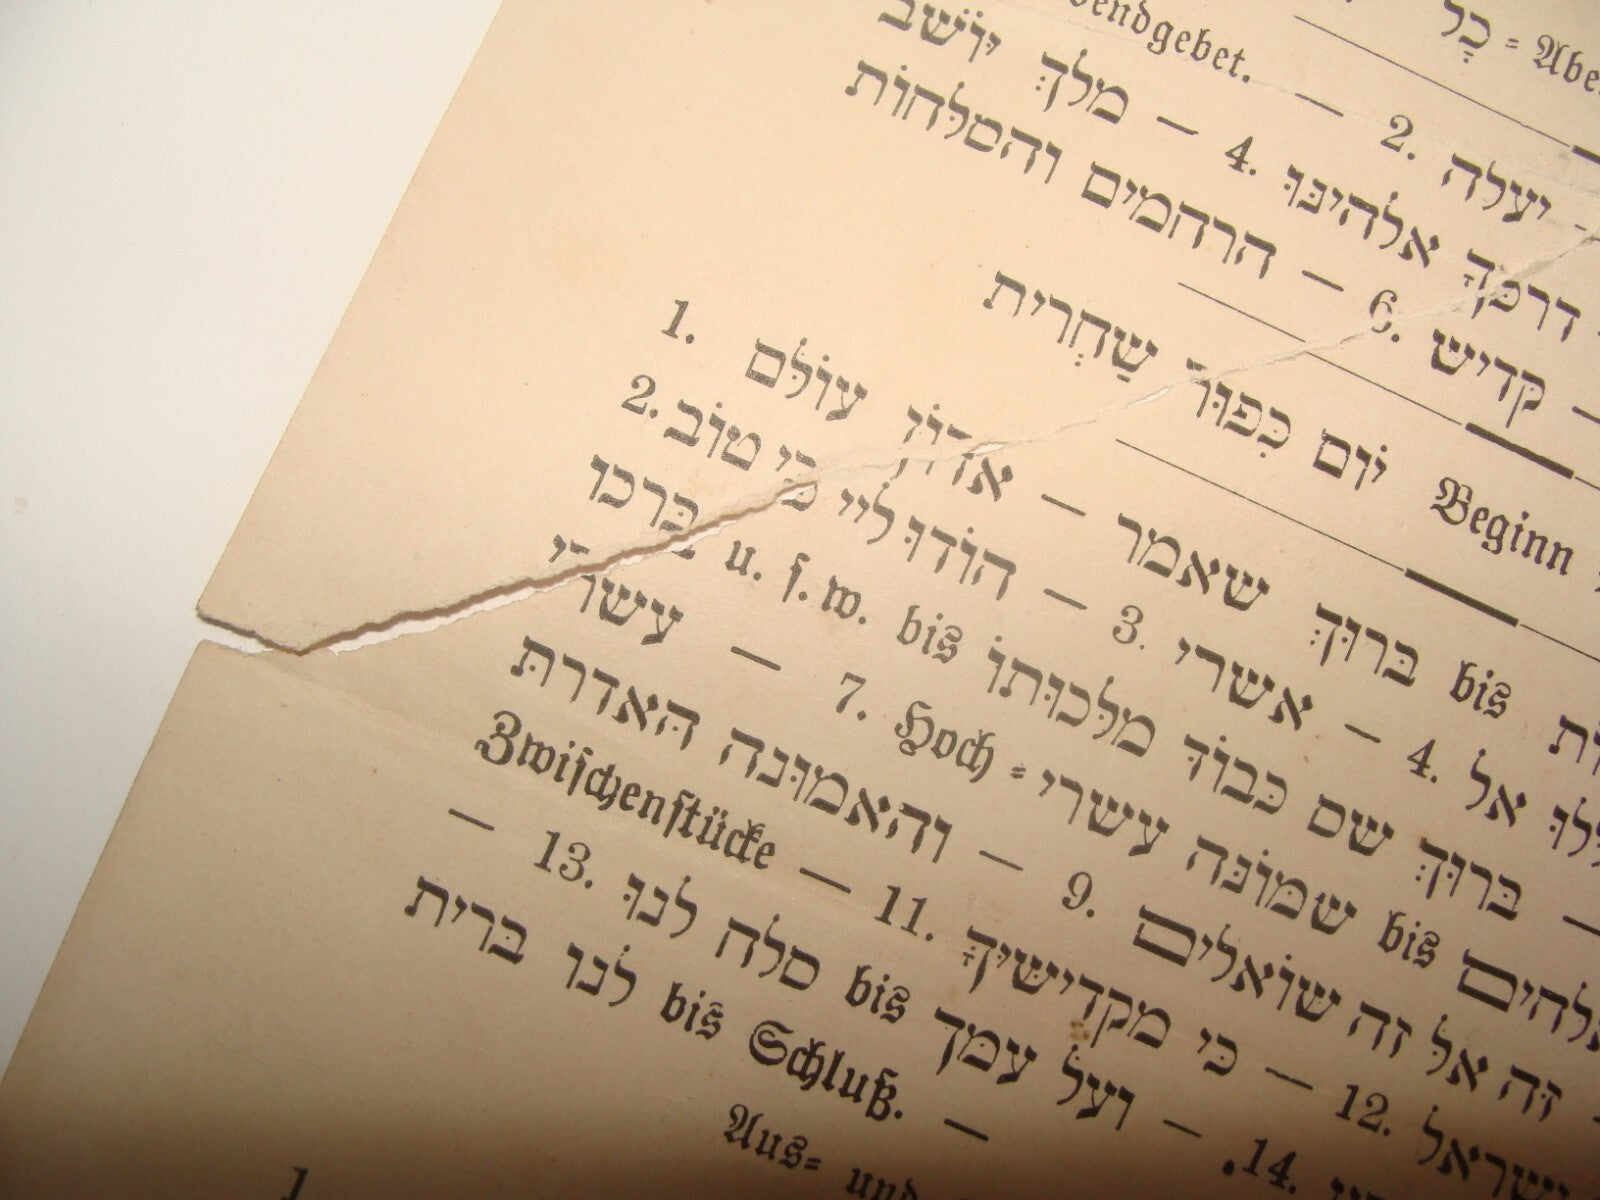 כָל = 
bendgebet. — 2. יעלה
דרכך אלהינו .4 — מלך יושב
— קדיש .6 — הרחמים והסלחות
Beginn יוֹם כִפוּר שַחְרִית
1. אדון עולם — ברוך שאמר bis
2. הודו ליי כי טוב — 3. אשרי — 4. אל
ברכו u. s. w. bis ברוך שם כבוד מלכותו —
עשרי — 7. Hoch= שמונה עשרי bis
האדרת והאמונה — 9. זה אל זה שואלים
Zwischenstücke — 11. כי מקדישיך — 12. ישראל
— 13. סלח לנו bis ועל עמך — .14
ברית לנו bis Schluß. —
Aus= und
1